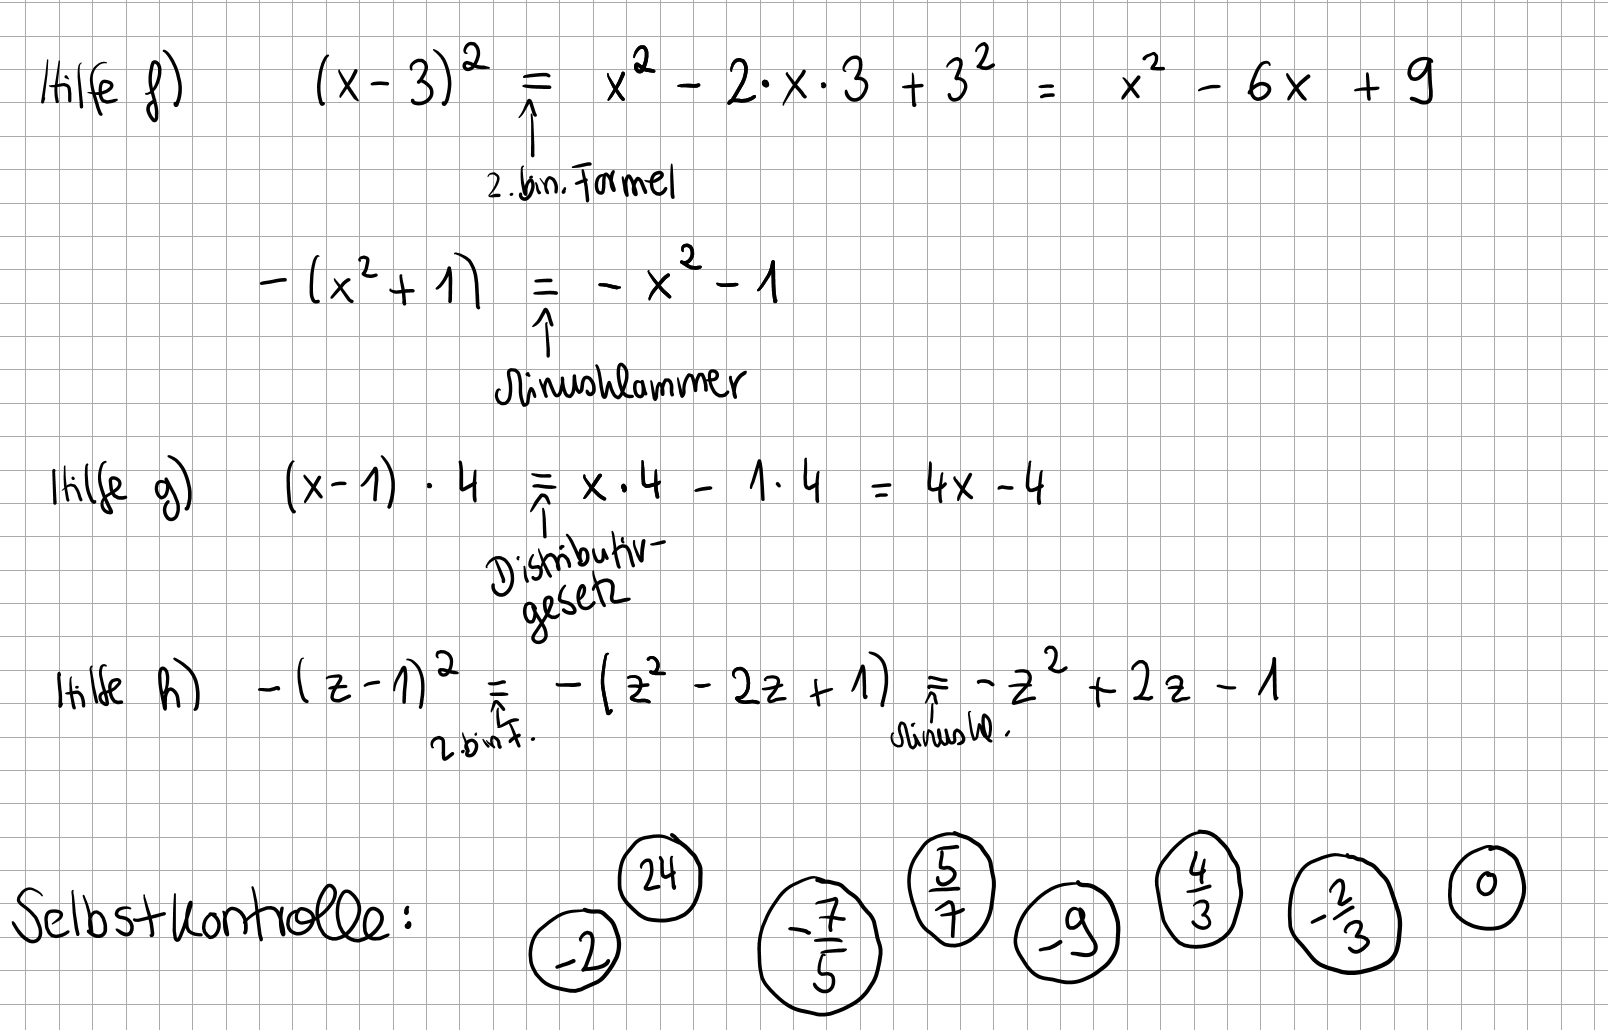 Hilfe f) (x-3)² = x² - 2·x·3 + 3² = x² - 6x + 9
↑
2. bin. Formel
-(x² + 1) = -x² - 1
↑
Minusklammer
Hilfe g) (x-1) · 4 = x·4 - 1·4 = 4x - 4
↑
Distributiv-
gesetz
Hilfe h) -(z-1)² = -(z² - 2z + 1) = -z² + 2z - 1
↑ ↑
2. bin F. Minuskl.
Selbstkontrolle: -2 24 -7/5 5/7 -9 4/3 -2/3 0